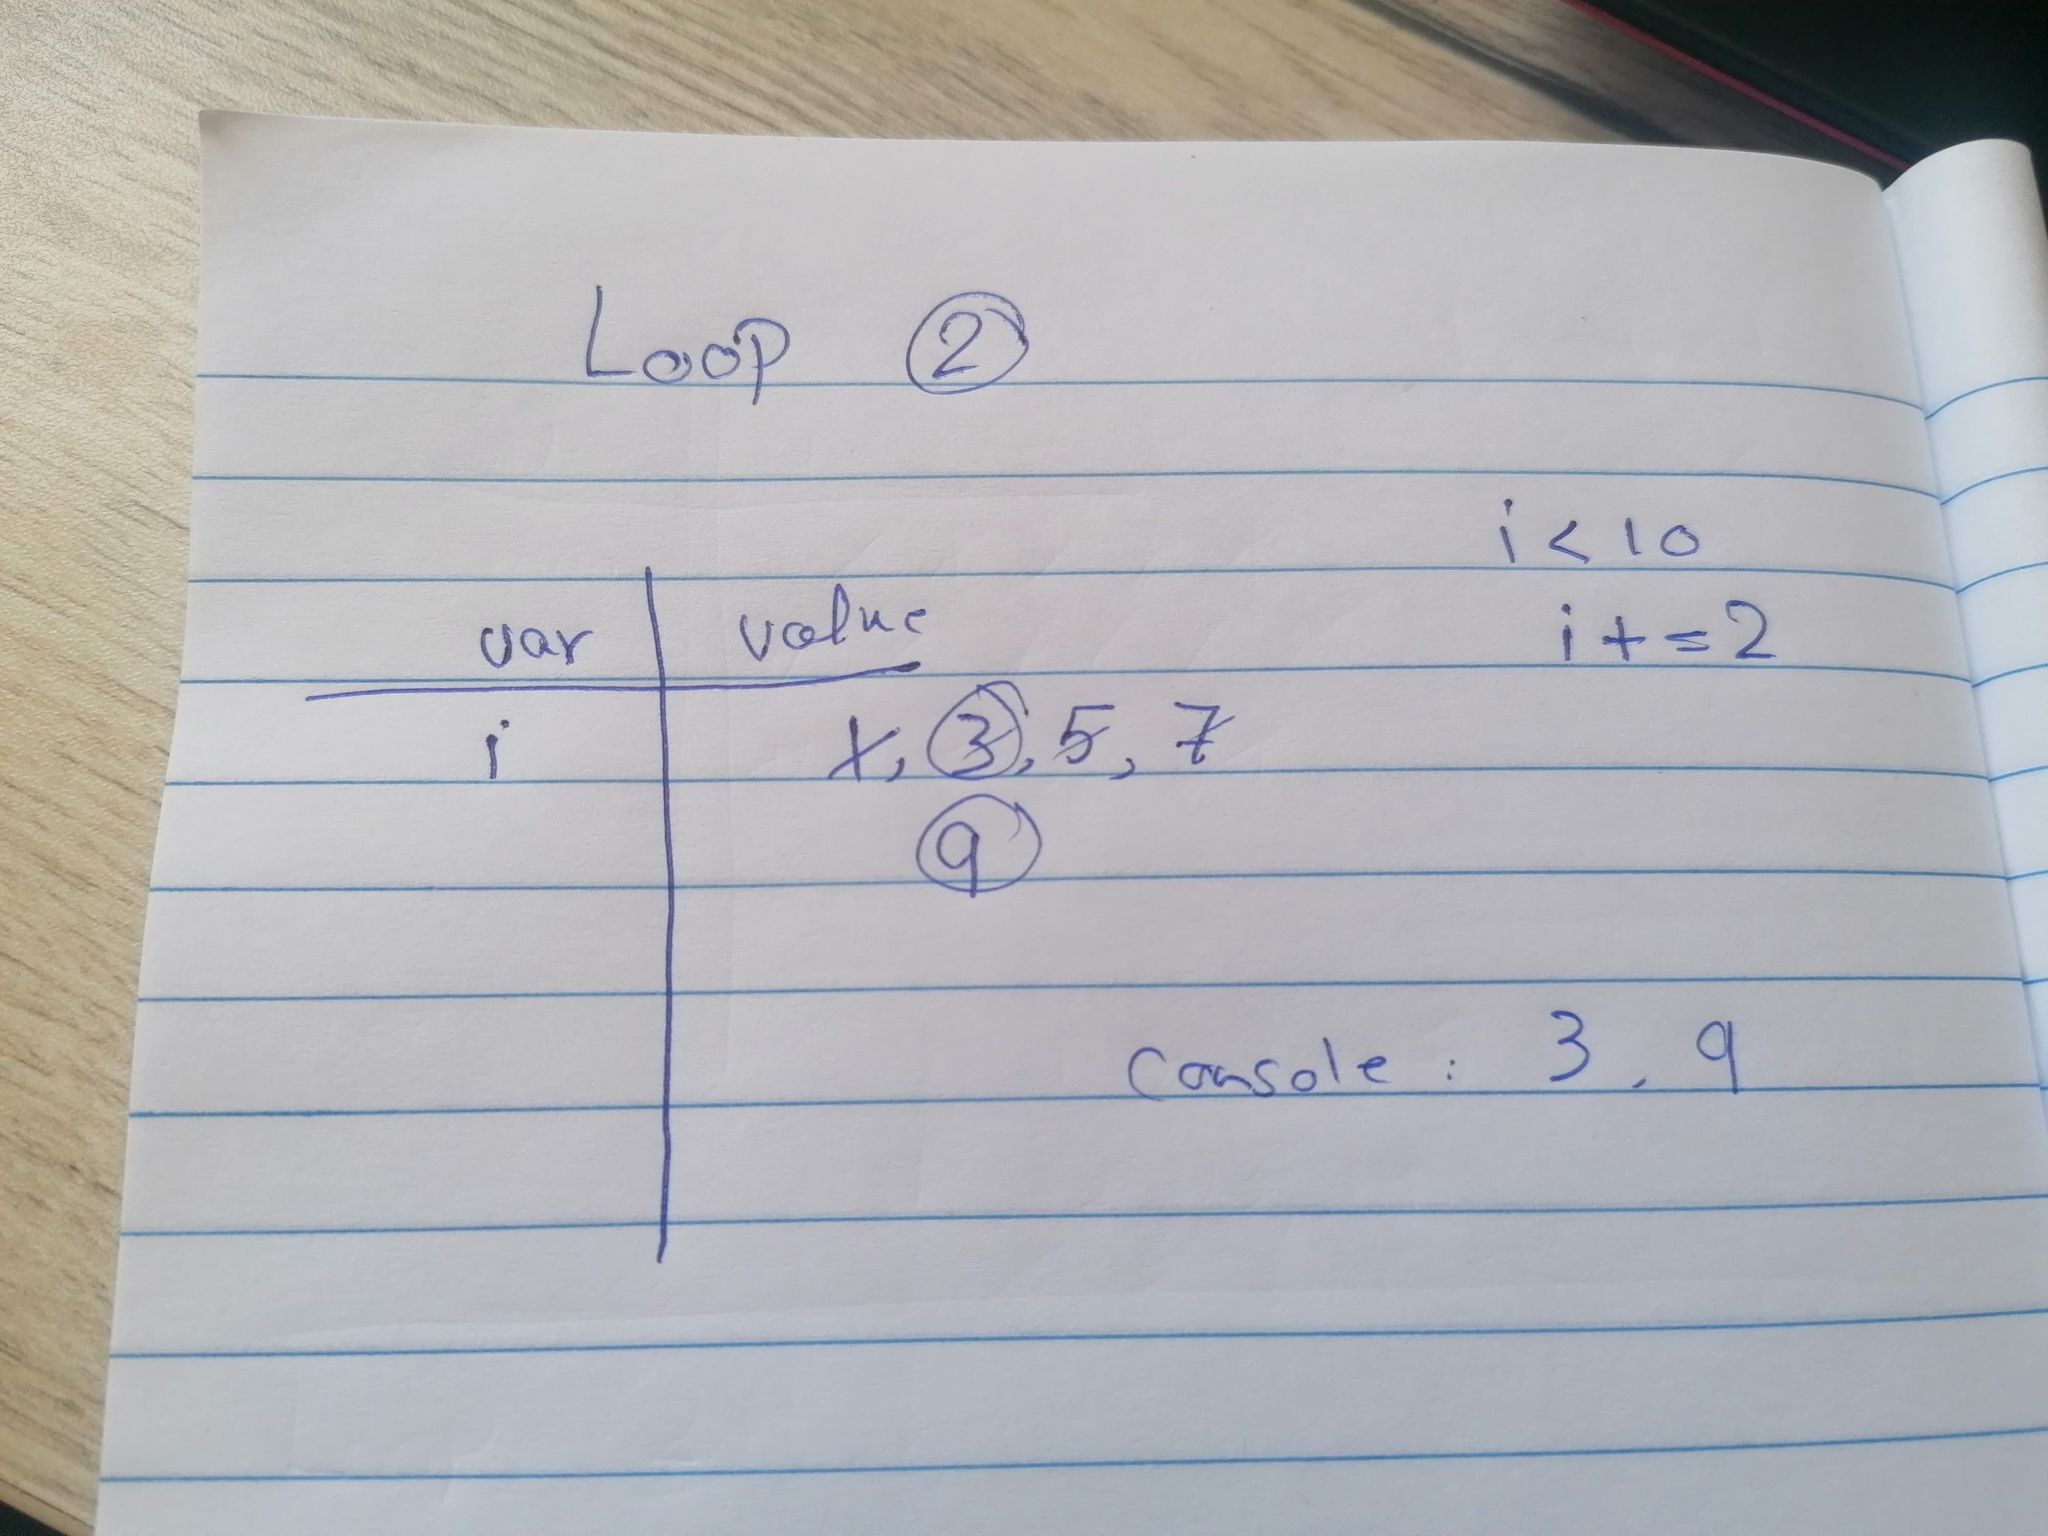 Loop 2
i < 10
i += 2
var value
i 1, 3, 5, 7
9
Console : 3, 9